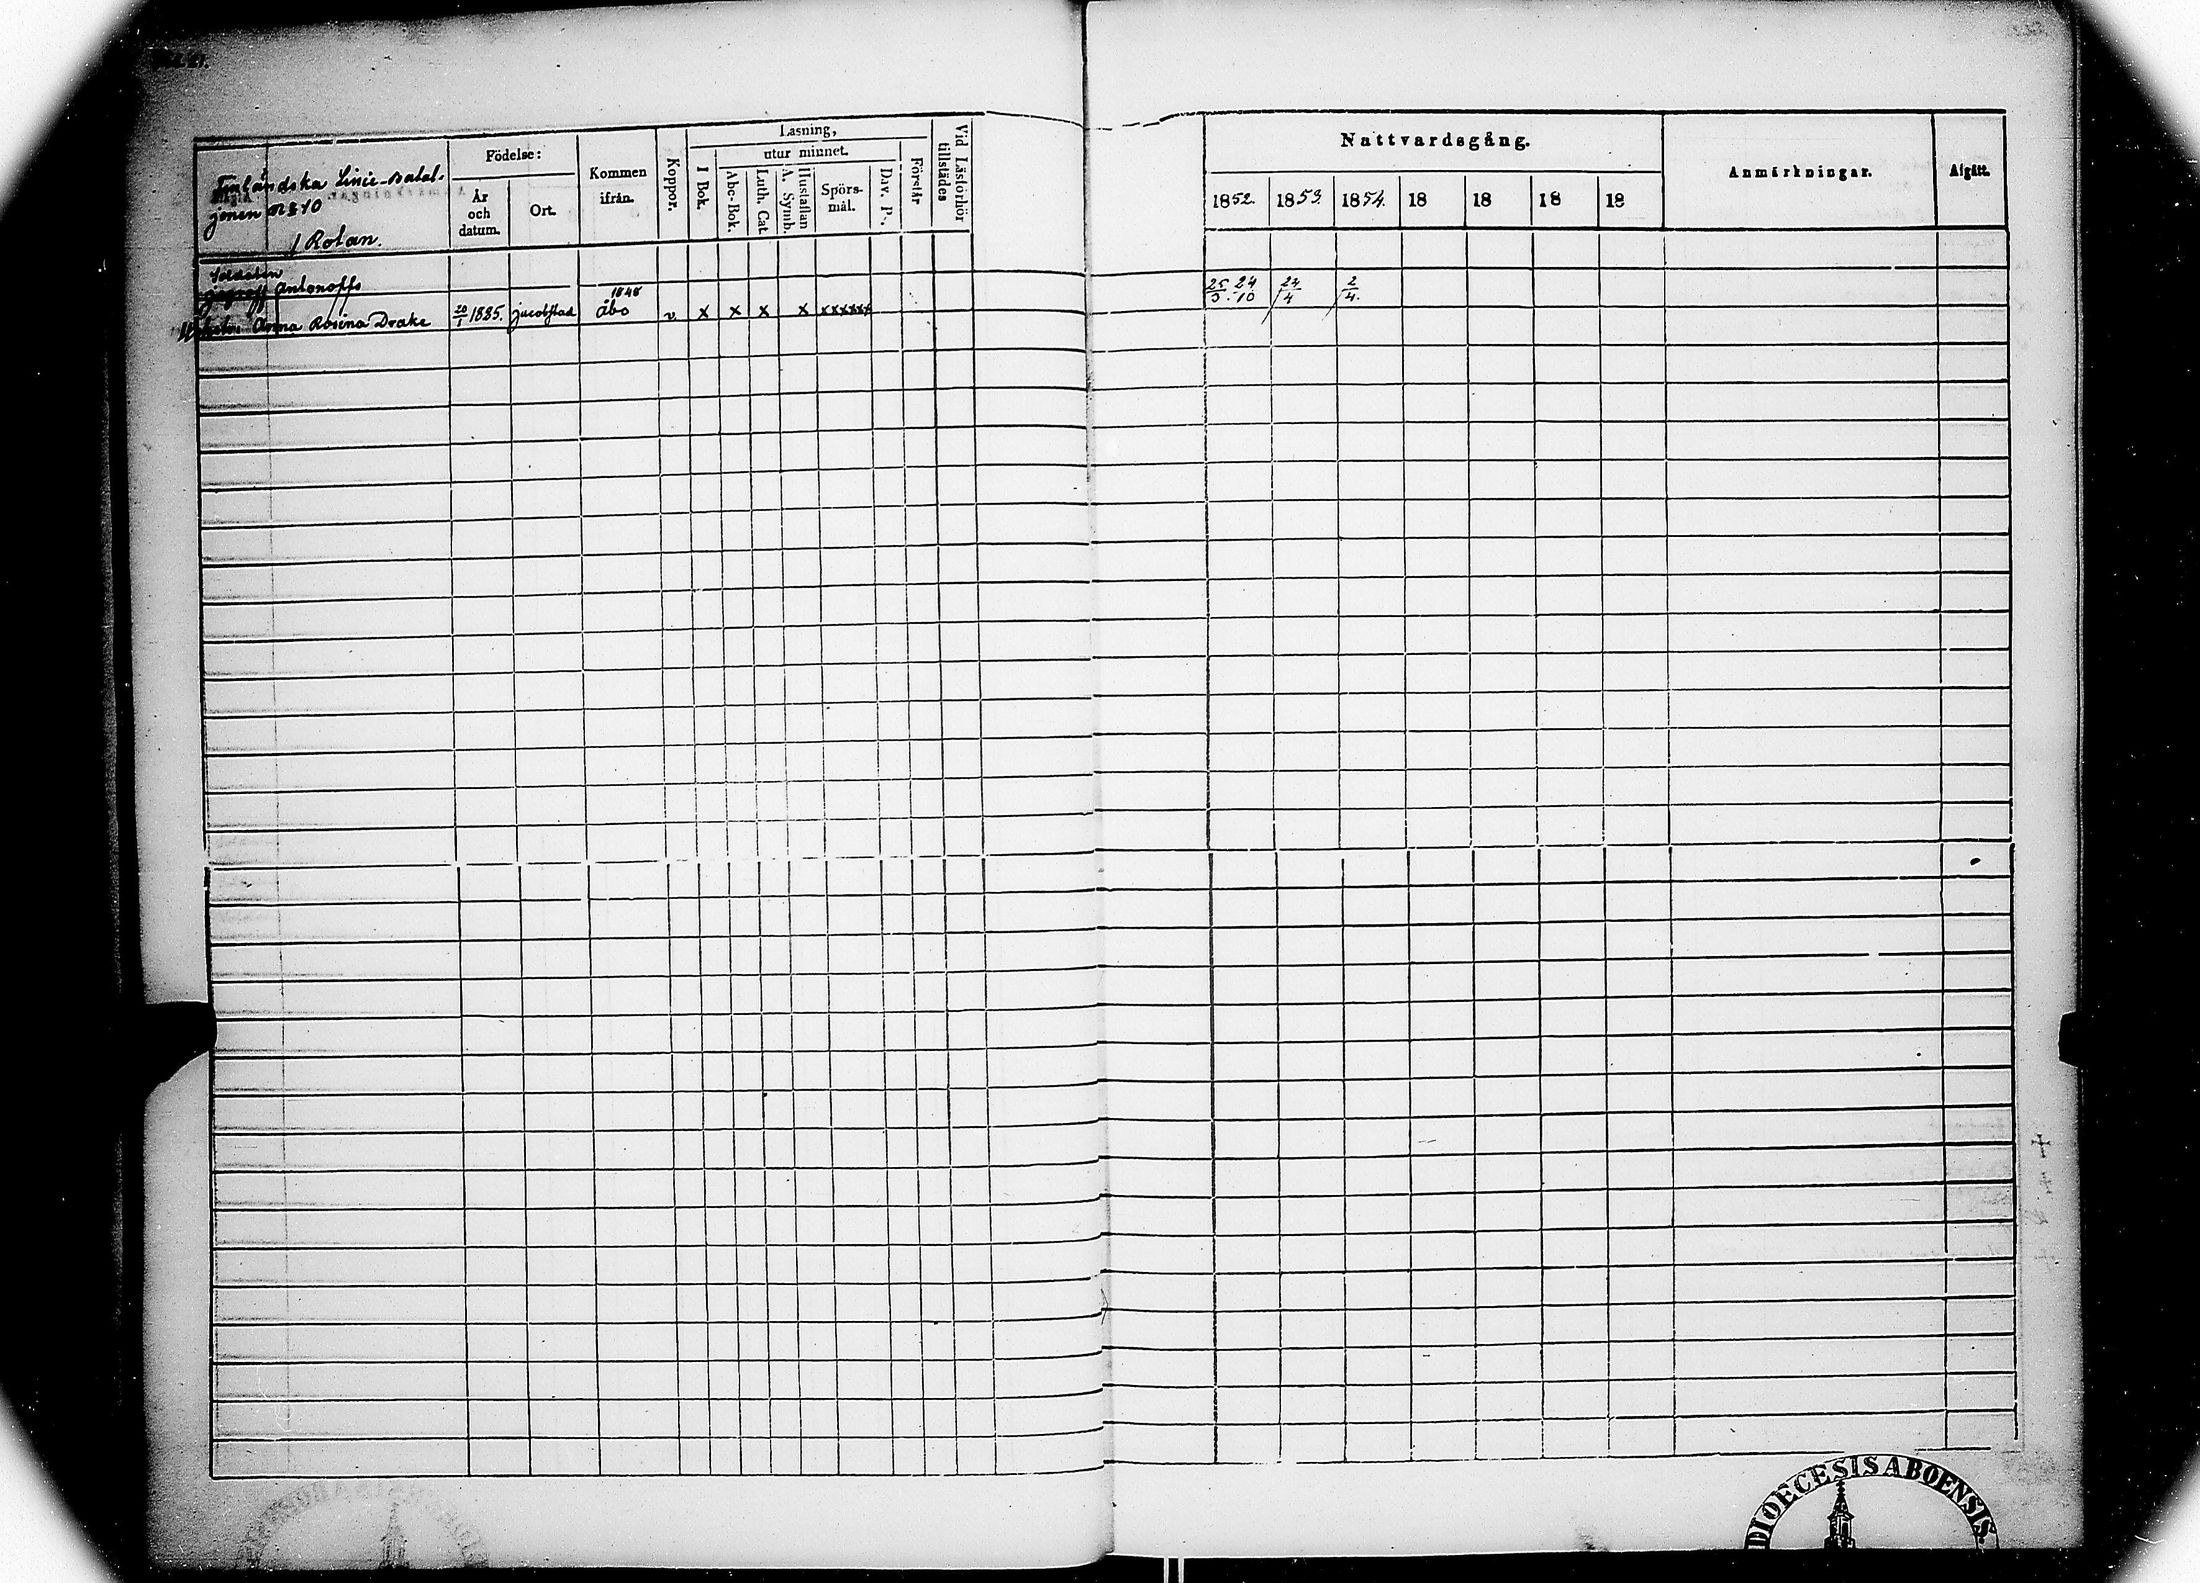 Finländska Linie-Batal-
jonen № 10
1 Rotan.
Födelse:
År
och
datum.
Ort.
Kommen
ifrån.
Koppor.
Läsning,
I Bok.
utur minnet.
Abc-Bok.
Luth. Cat.
Hustaflan
A. Symb.
Spörs-
mål.
Dav. Ps.
Förstår
Vid Läsförhör
tillstädes
Nattvardsgång.
1852. 1853. 1854. 18 18 18 18
Anmärkningar.
Afgått.
Soldaten
Antonoffs
Anna Rosina Drake 20/1 1825. Jacobstad 1848 Åbo v x x x x xxxxxx
25/3 24/10 24/4 2/4.
DIOECESIS ABOENSIS.